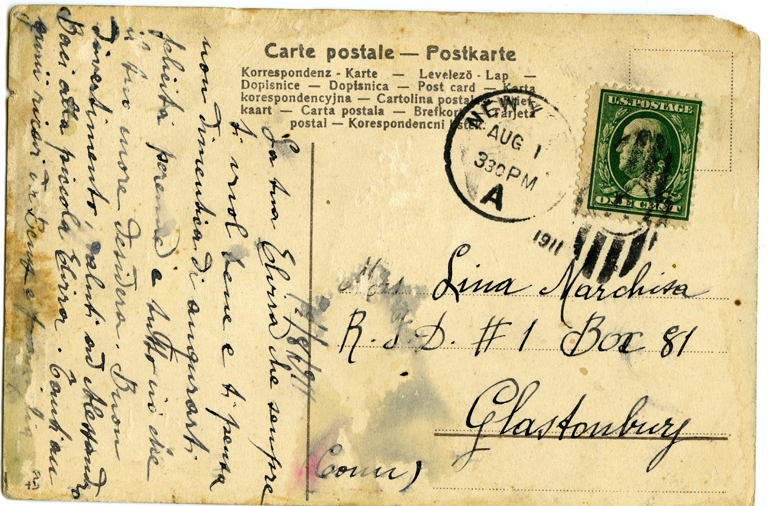 Carte postale — Postkarte
Korrespondenz - Karte — Levelező - Lap —
Dopisnice — Dopisnica — Post card — Karta
korespondencyjna — Cartolina postale — Brief-
kaart — Carta postala — Brefkort — Tarjeta
postal — Korespondencni listek
U.S. POSTAGE
ONE CENT
NEW
AUG 1
330PM
A
1911
Mrs Lina Marchisa
R. F. D. # 1 Box 81
Glastonbury
Conn)
La tua Elvira che sempre
ti vuol bene e ti pensa
non dimentica di augurarti
felicità perenne e tutto ciò che
il tuo cuore desidera. Buon
divertimento, saluti ad
Baci alla piccola Elvira. Tanti au
guri